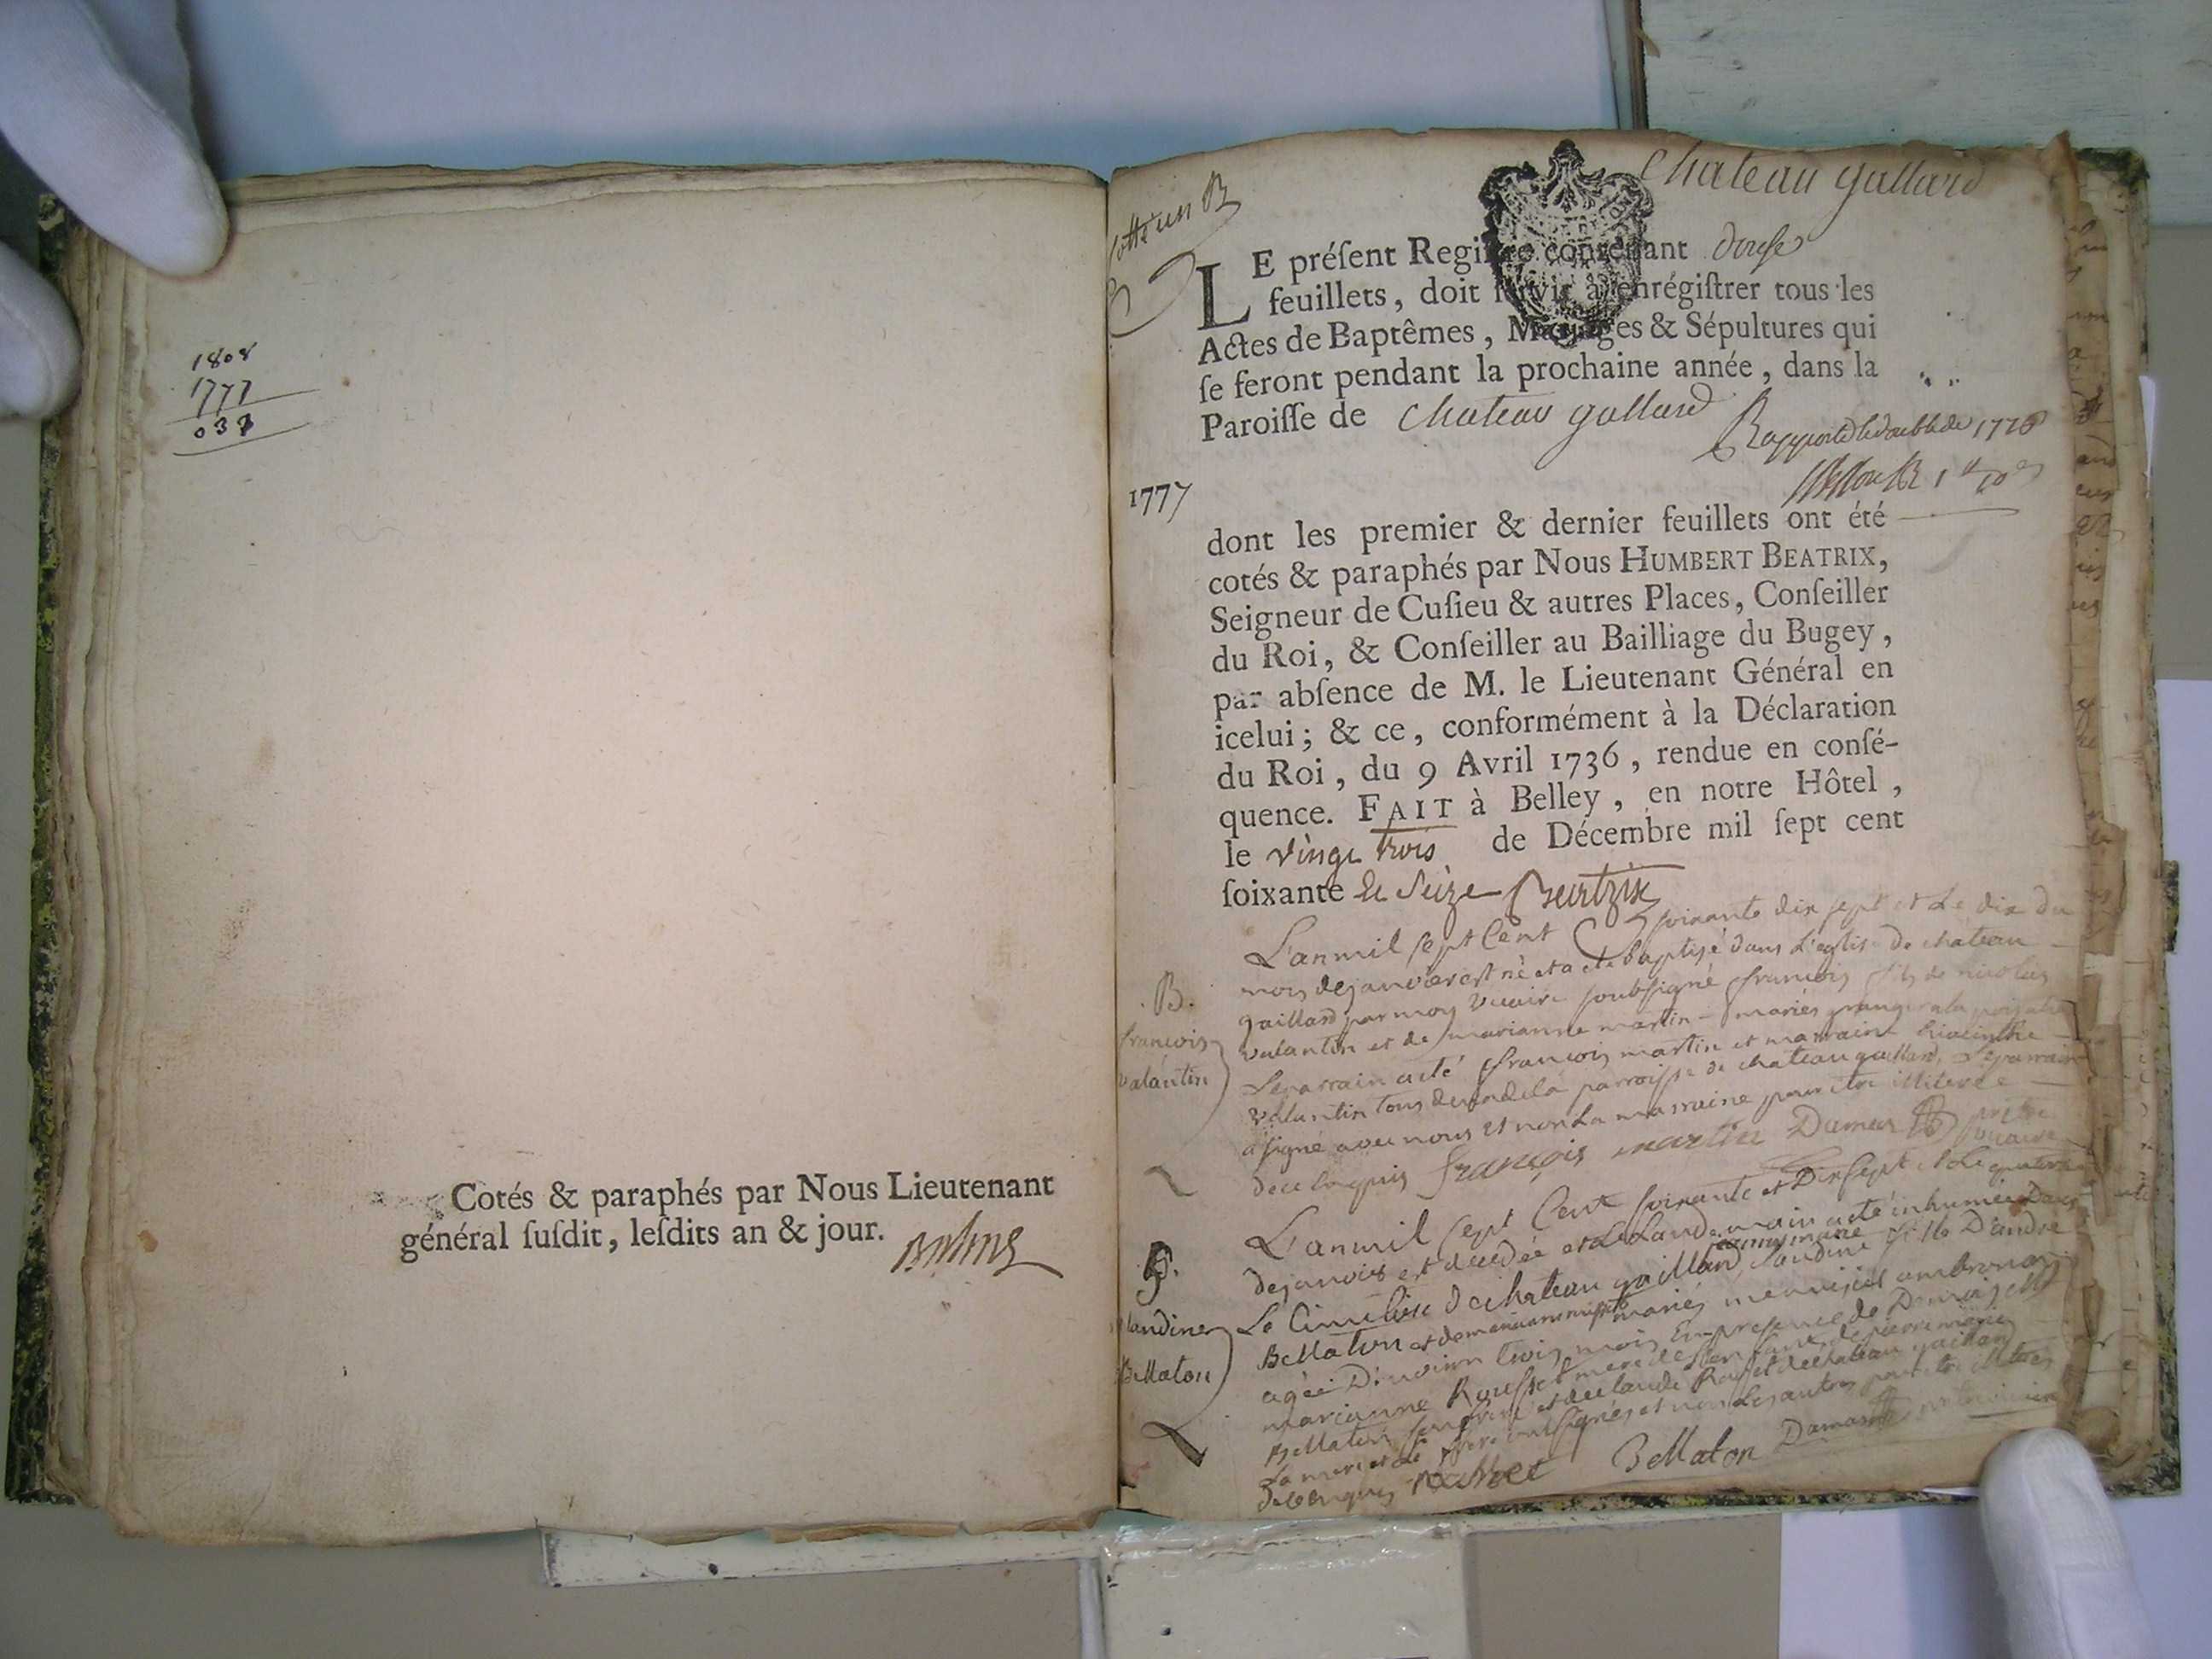 1808
1777
038
Cotés & paraphés par Nous Lieutenant
général ſuſdit, leſdits an & jour.
Chateau gallard
LE préſent Regiſtre contenant douſe
feuillets, doit ſervir à enrégiſtrer tous les
Actes de Baptêmes, Mariages & Sépultures qui
ſe feront pendant la prochaine année, dans la
Paroiſſe de Chateau gallard
Rapporté le double de 1776
1777
dont les premier & dernier feuillets ont été
cotés & paraphés par Nous HUMBERT BEATRIX,
Seigneur de Cuſieu & autres Places, Conſeiller
du Roi, & Conſeiller au Bailliage du Bugey,
par abſence de M. le Lieutenant Général en
icelui; & ce, conformément à la Déclaration
du Roi, du 9 Avril 1736, rendue en conſé-
quence. FAIT à Belley, en notre Hôtel,
le vingt trois de Décembre mil ſept cent
ſoixante et seize Beatrix
L'an mil sept Cent soixante dix sept et Le dix du
mois de janvier est né et a eté baptisé dans L'eglise de chateau
gaillard par moy vicaire soubsigné françois fils de nicolas
valantin et de marianne martin mariés
Le parrain a eté françois martin et marraine hiacinthe
valantin tous deux de la parroisse de chateau gaillard, Le parrain
a signé avec nous et non La marraine pour etre illiterée
de ce enquis françois martin Damas prêtre
vicaire
B.
françois
valantin
L'an mil sept Cent soixante et Dix sept et Le quatorze
de janvier est decedée et Le Landemain a eté inhumée dans
Le Cimetiere de chateau gaillard Claudine fille D'andré
Bellaton et de mariés
agée D'environ trois mois En presence de Demoiselle
marianne Rousset mere
Bellaton
La mere et Le frere soubsignés et non Les autres pour etre illiterés
de ce enquis Rousset Bellaton Damas
S.
Claudine
Bellaton